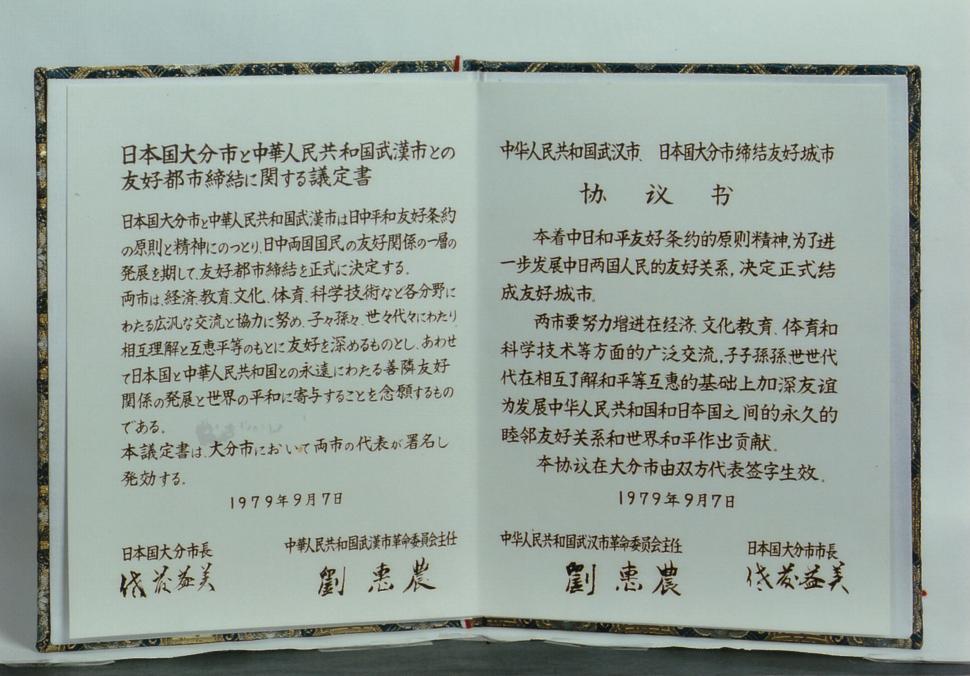 日本国大分市と中華人民共和国武漢市との
友好都市締結に関する議定書
日本国大分市と中華人民共和国武漢市は日中平和友好条約
の原則と精神にのっとり、日中両国国民の友好関係の一層の
発展を期して、友好都市締結を正式に決定する。
両市は、経済、教育、文化、体育、科学技術など各分野に
わたる広汎な交流と協力に努め、子々孫々、世々代々にわたり、
相互理解と互恵平等のもとに友好を深めるものとし、あわせ
て日本国と中華人民共和国との永遠にわたる善隣友好
関係の発展と世界の平和に寄与することを念願するもの
である。
本議定書は、大分市において両市の代表が署名し
発効する。
1979年9月7日
日本国大分市長
中華人民共和国武漢市革命委員会主任
佐藤益美
劉惠農
中华人民共和国武汉市、日本国大分市缔结友好城市
协议书
本着中日和平友好条约的原则精神,为了进
一步发展中日两国人民的友好关系,决定正式结
成友好城市。
两市要努力增进在经济、文化教育、体育和
科学技术等方面的广泛交流,子子孫孫、世世代
代在相互了解和平等互惠的基础上加深友谊
为发展中华人民共和国和日本国之间的永久的
睦邻友好关系和世界和平作出贡献。
本协议在大分市由双方代表签字生效。
1979年9月7日
中华人民共和国武汉市革命委员会主任
日本国大分市市長
劉惠農
佐藤益美